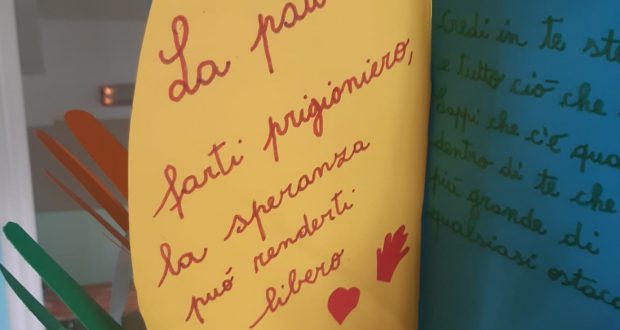 La pau
farti prigioniero,
la speranza
può renderti
libero
Credi in te ste
e tutto ciò che
Sappi che c'è qua
dentro di te che
più grande di
qualsiasi ostaco